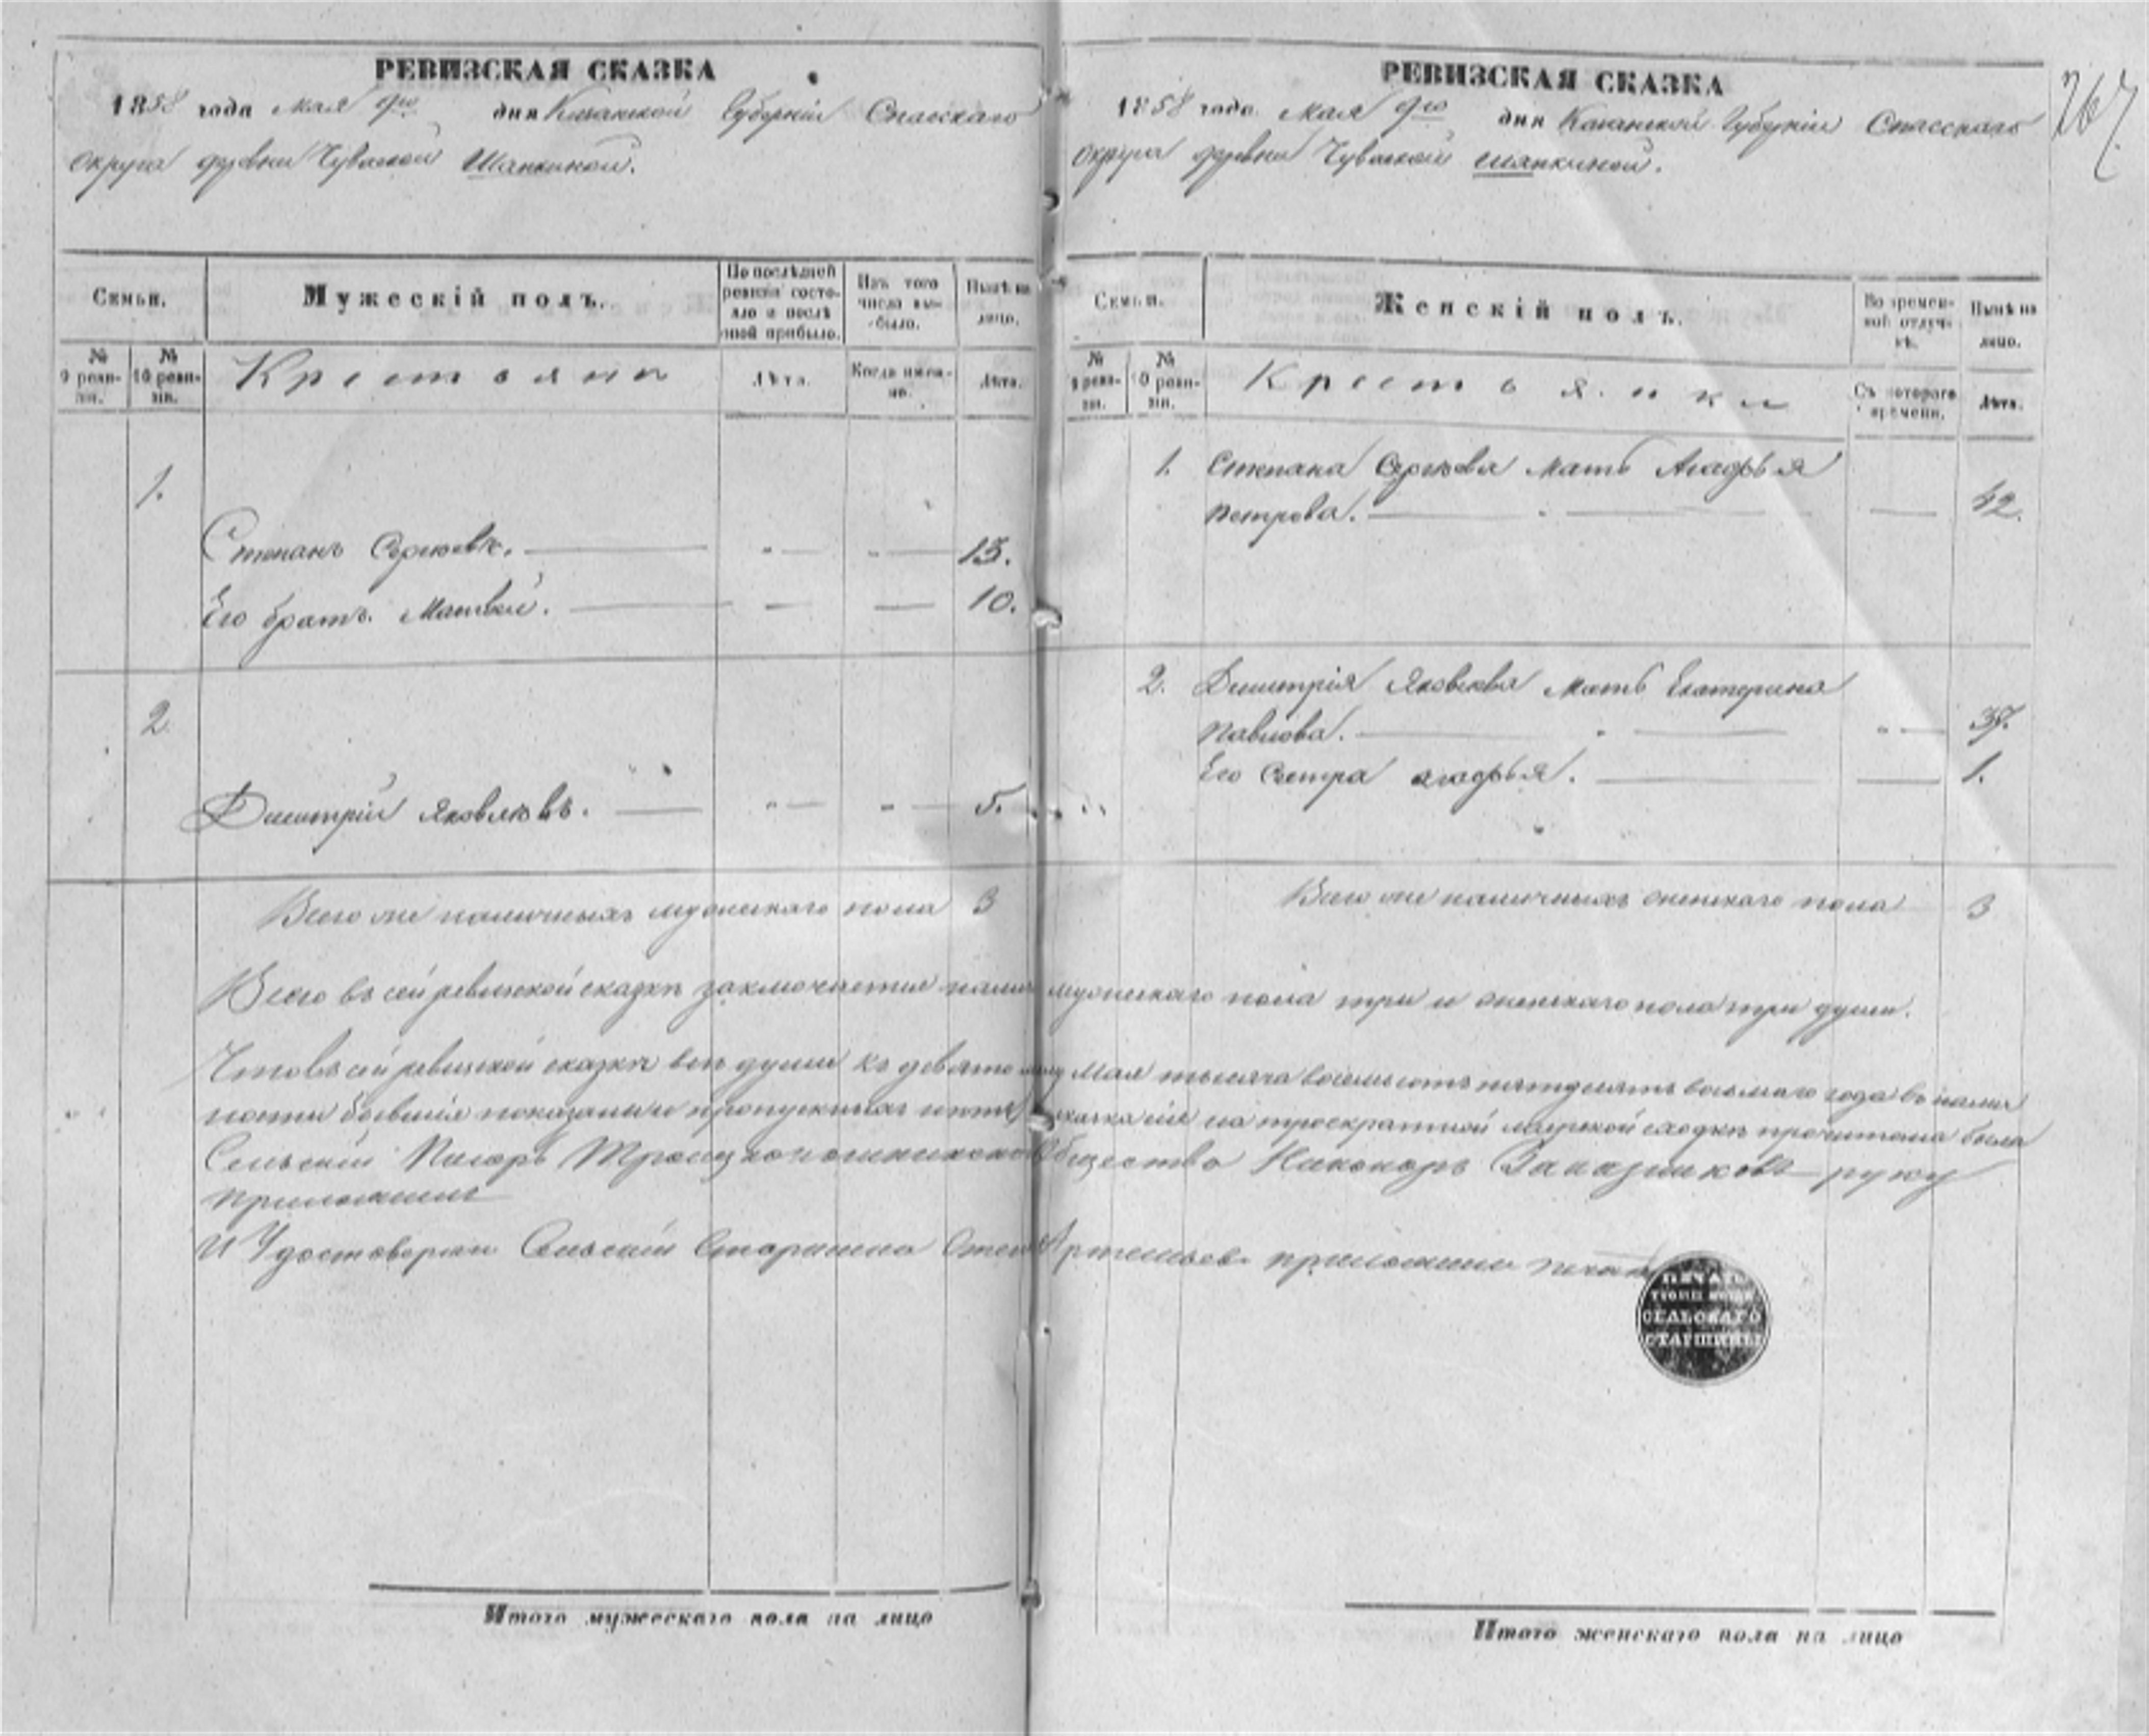 РЕВИЗСКАЯ СКАЗКА
1858 года мая 9го дня Казанской Губерніи Спасскаго
округа деревни Чувашской Шапкиной.
Семьи.
Мужескій полъ.
По послѣдней ревизіи состояло и послѣ оной прибыло.
Изъ того числа выбыло.
Нынѣ на лицо.
№ 9 ревизіи.
№ 10 ревизіи.
Крестьяни
Лѣта.
Когда именно.
Лѣта.
1.
Степанъ Сергѣевъ. 13.
Его братъ Матвей. 10.
2
Дмитрій Яковлевъ. 5.
Всего же наличныхъ мужескаго пола 3
РЕВИЗСКАЯ СКАЗКА
1858 года Мая 9го дня Казанской Губерніи Спасскаго
округа деревни Чувашской Шапкиной.
267
Семьи.
Женскій полъ.
Во временной отлучкѣ.
Нынѣ на лицо.
№ 9 ревизіи.
№ 10 ревизіи.
Крестьянки
Съ котораго времени.
Лѣта.
1. Степана Сергѣева мать Агафья
Петрова. 42.
2. Дмитрія Яковлева мать Екатерина
Павлова. 37.
Его сестра агафья. 1.
Всего же наличныхъ женскаго пола 3
Всего въ сей ревизской сказкѣ заключается мужескаго пола три и женскаго пола три души.
Что въ сей ревизской сказкѣ всѣ души къ девятому Мая тысяча восемьсотъ пятдесятъ восьмаго года въ налич
ности бывшія показаны и пропускныхъ нѣтъ сказка сія на троекратной мирской сходкѣ прочитана была
Сельскій Писарь Общества Никоноръ руку
приложилъ
И Удостоверяю Сельскій Старшина Артемьевъ приложилъ печать
ПЕЧАТЬ
СЕЛЬСКАГО
СТАРШИНЫ
Итого мужескаго пола на лицо
Итого женскаго пола на лицо